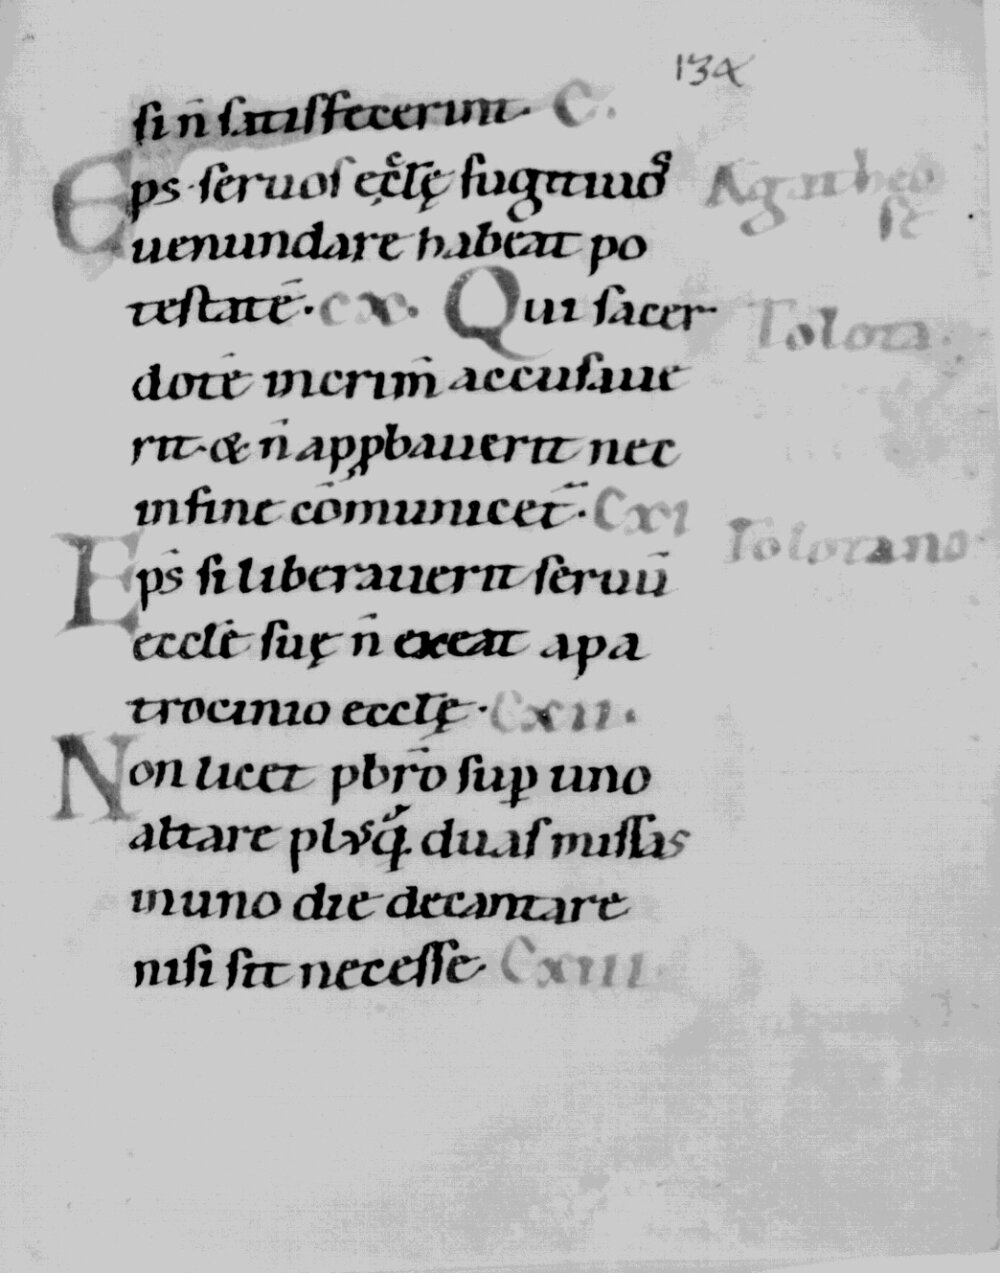 134
si n̄ satisfecerint. C.
Eps̄ ·seruos ęcclę̄ fugitiuos
uenundare habeat po
testatē. CX. Qui sacer
dotē incrim̄ accusaue
rit· & n̄ app̱bauerit nec
infine cōmunicet̄. CXI
Ep̄s si liberauerit seruū
eccl̄e suę n̄ exeat apa
trocinio eccl̄ę. CXII.
Non licet pbr̄o suꝑ uno
altare plusq̄ duas missas
inuno die decantare
nisi sit necesse. CXIII.
Tolosa.
Tolosano